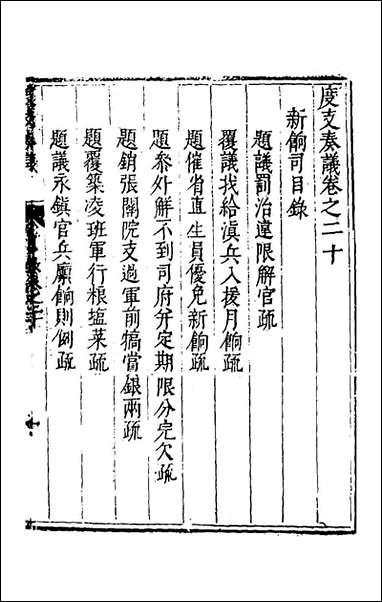 度支奏議卷之二十
新餉司目錄
題議罰治違限解官疏
覆議找給滇兵入援月餉疏
題催省直生員優免新餉疏
題參外解不到司府分定期限分完欠疏
題銷張關院支過軍前犒賞銀兩疏
題覆築凌班軍行根塩菜疏
題議永鎮官兵廩餉則例疏